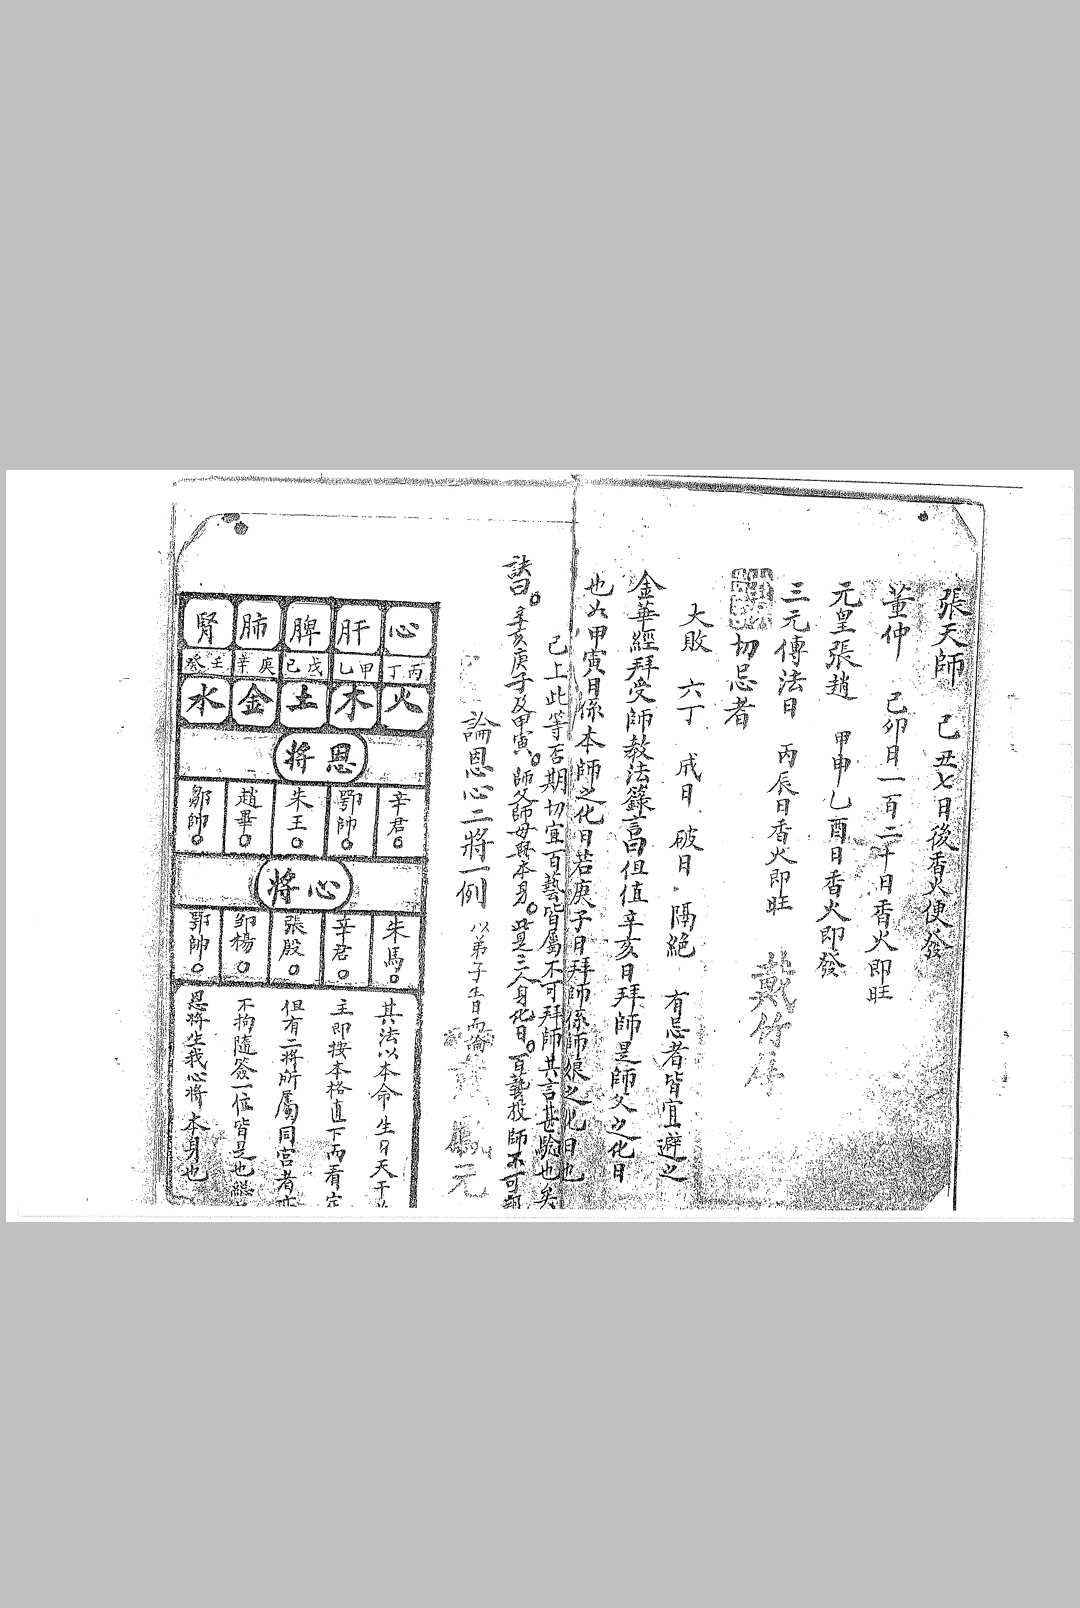 張天師　己丑七日後香火便發
董仲　己卯日一百二十日香火即旺
元皇張趙　甲申乙酉日香火即發
三元傳法日　丙辰日香火即旺
戴竹
切忌者
大敗　六丁　戌日　破日　隔絕　有忌者皆宜避之
金華經拜受師教法籙言曰但值辛亥日拜師是師父之化日
也如甲寅日係本師之化日若庚子日拜師係師娘之化日也
已上此等否期切宜百藝皆屬不可拜師其言甚驗也矣
訣曰。辛亥庚子及甲寅。師父師母與本身。此是三人身化日。百藝投師不可
論恩心二將一例　以弟子生日而論
元
心　肝　脾　肺　腎
丙丁　甲乙　戊己　庚辛　壬癸
火　木　土　金　水
恩將
辛君　鄂帥　朱王　趙畢　鄒帥
心將
朱馬　辛君　張殷　鄧楊　鄂帥
其法以本命生日天干
主即按本格直下而看定
但有二將所屬同宮者亦
不拘隨簽一位皆是也
恩將生我心將本身也